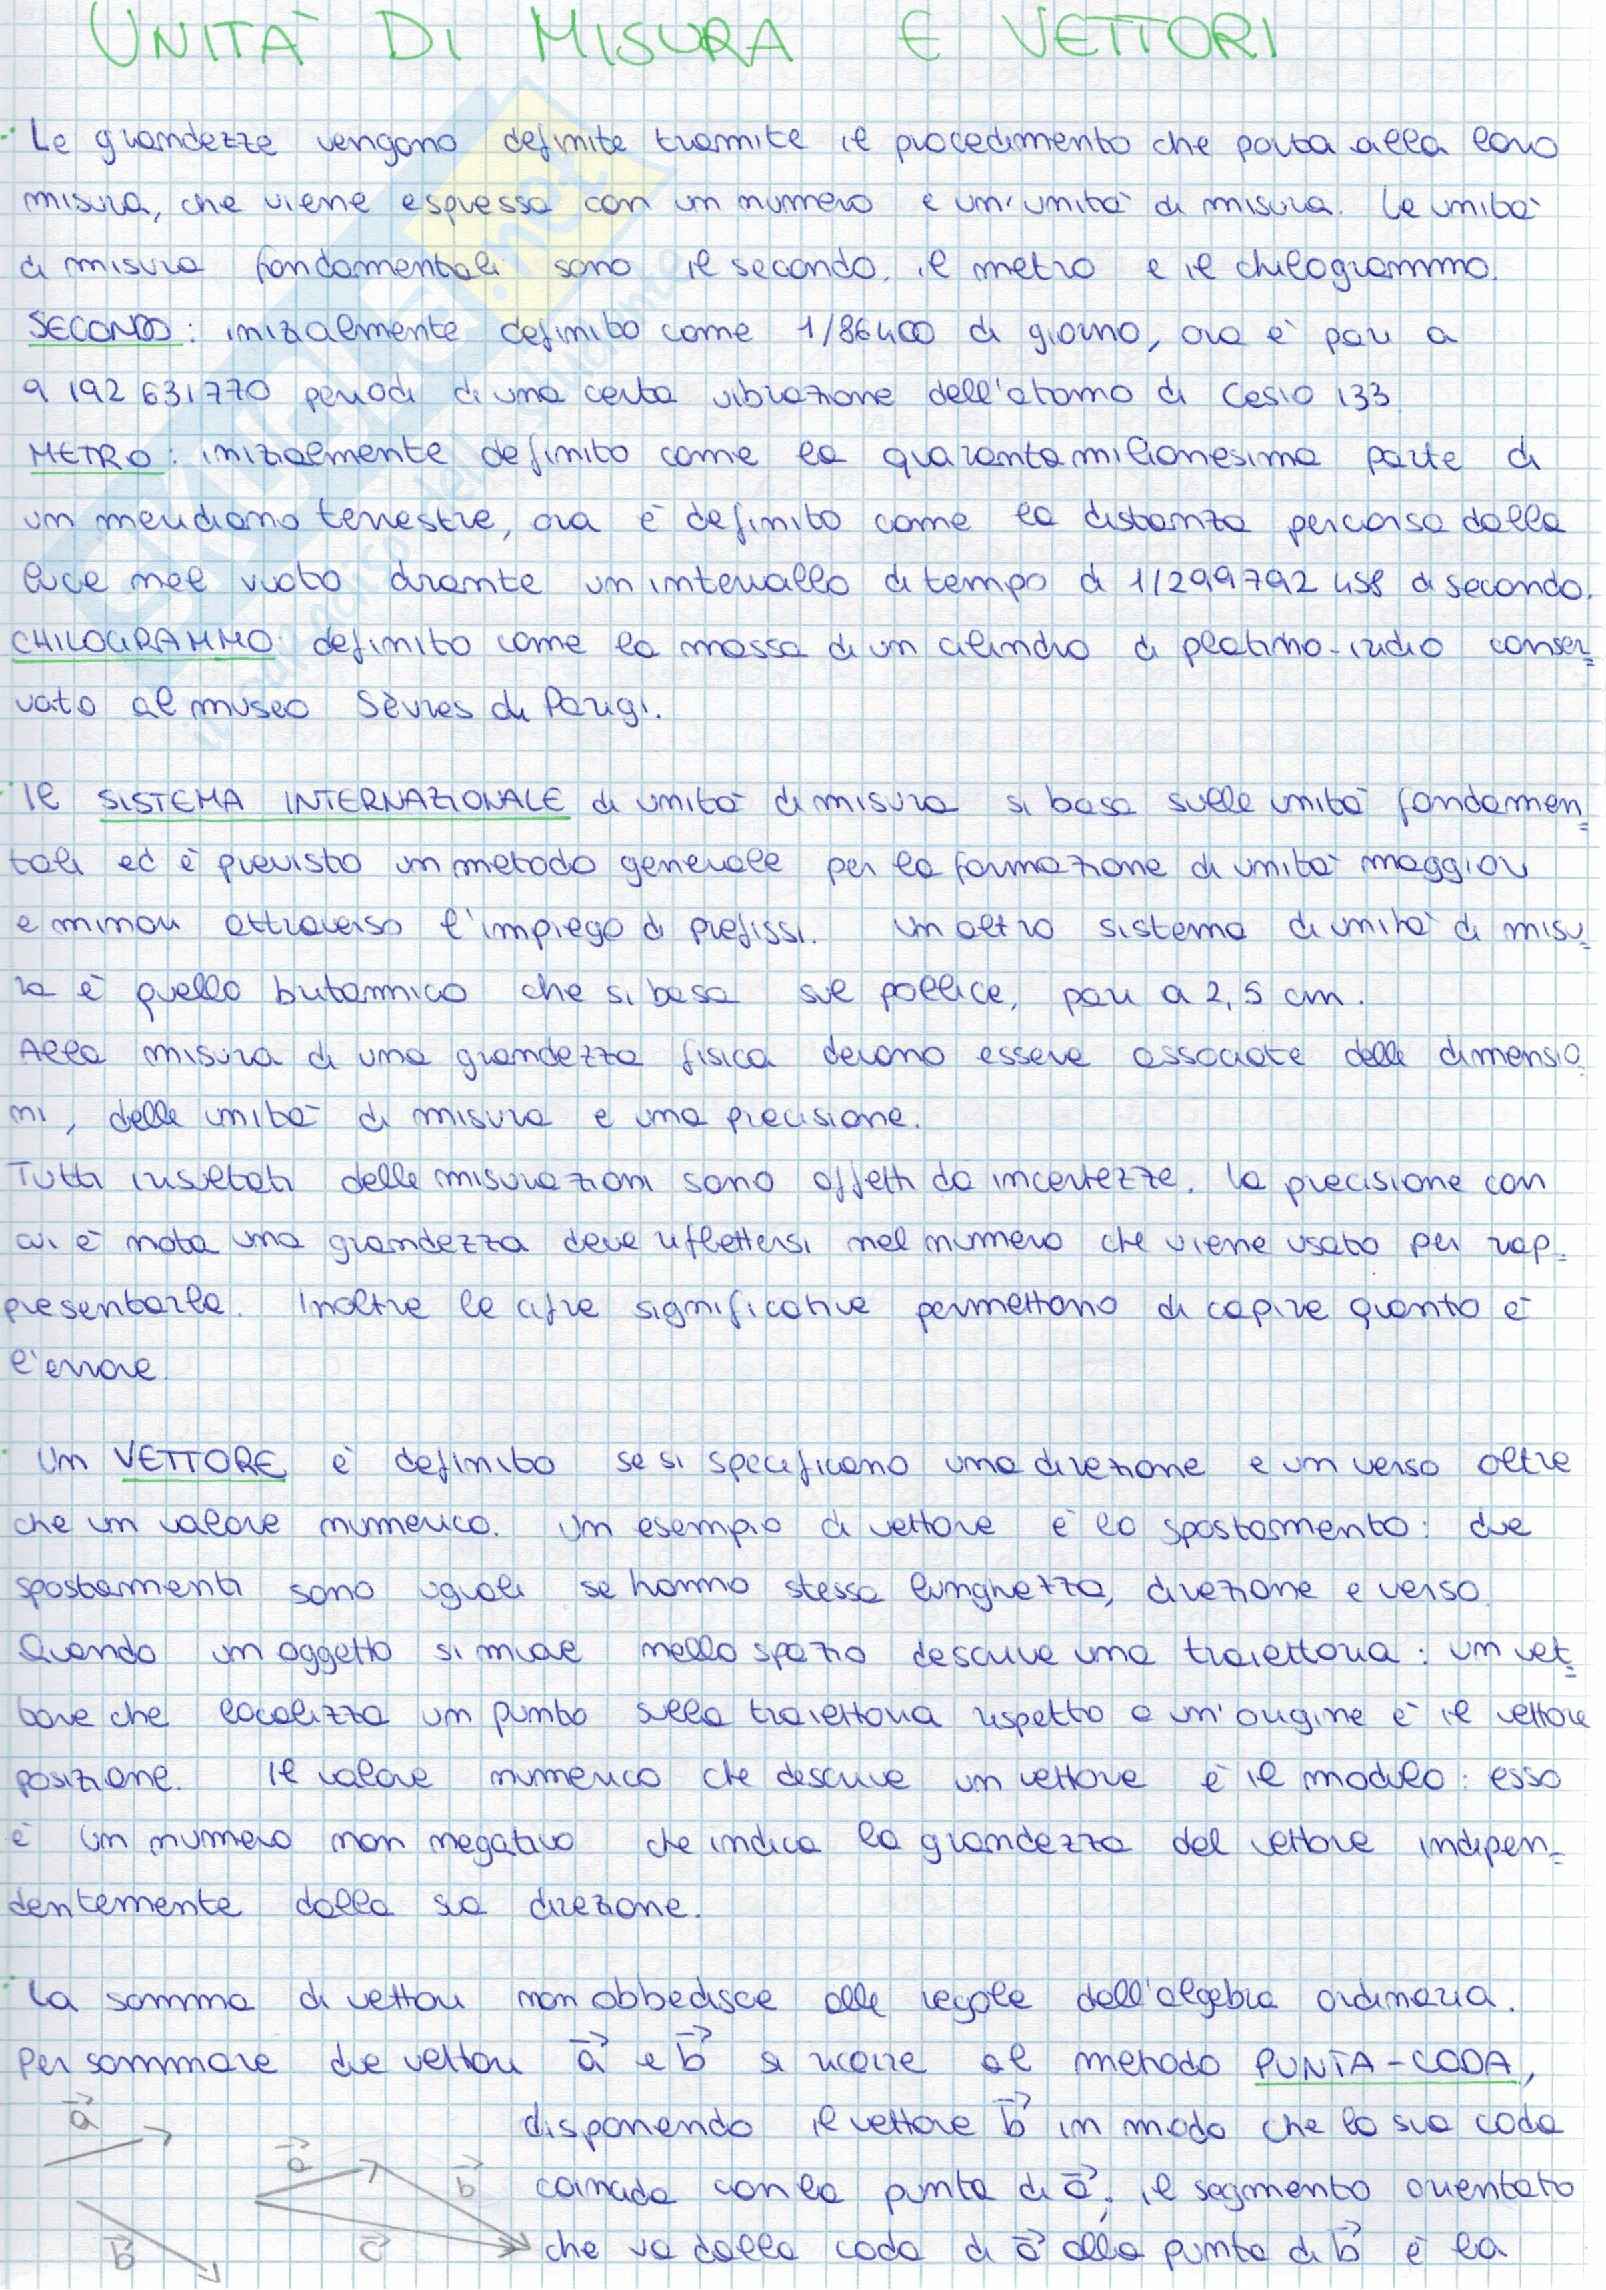 UNITÀ DI MISURA E VETTORI
Le grandezze vengono definite tramite il procedimento che porta alla loro
misura, che viene espressa con un numero e un'unità di misura. Le unità
di misura fondamentali sono il secondo, il metro e il chilogrammo.
SECONDO: inizialmente definito come 1/86400 di giorno, ora è pari a
9 192 631 770 periodi di una certa vibrazione dell'atomo di Cesio 133
METRO: inizialmente definito come la quarantamilionesima parte di
un meridiano terrestre, ora è definito come la distanza percorsa dalla
luce nel vuoto durante un intervallo di tempo di 1/299 792 458 di secondo.
CHILOGRAMMO: definito come la massa di un cilindro di platino-iridio conser=
vato al museo Sèvres di Parigi.
Il SISTEMA INTERNAZIONALE di unità di misura si basa sulle unità fondamen=
tali ed è previsto un metodo generale per la formazione di unità maggiori
e minori attraverso l'impiego di prefissi. Un altro sistema di unità di misu=
ra è quello britannico che si basa sul pollice, pari a 2,5 cm.
Alla misura di una grandezza fisica devono essere associate delle dimensio=
ni, delle unità di misura e una precisione.
Tutti i risultati delle misurazioni sono affetti da incertezze. La precisione con
cui è nota una grandezza deve riflettersi nel numero che viene usato per rap=
presentarla. Inoltre le cifre significative permettono di capire quanto è
l'errore.
Un VETTORE è definito se si specificano una direzione e un verso oltre
che un valore numerico. Un esempio di vettore è lo spostamento: due
spostamenti sono uguali se hanno stessa lunghezza, direzione e verso.
Quando un oggetto si muove nello spazio descrive una traiettoria: un vet=
tore che localizza un punto sulla traiettoria rispetto a un'origine è il vettore
posizione. Il valore numerico che descrive un vettore è il modulo: esso
è un numero non negativo che indica la grandezza del vettore indipen=
dentemente dalla sua direzione.
La somma di vettori non obbedisce alle regole dell'algebra ordinaria.
Per sommare due vettori a⃗ e b⃗ si ricorre al metodo PUNTA-CODA,
disponendo il vettore b⃗ in modo che la sua coda
coincida con la punta di a⃗; il segmento orientato
che va dalla coda di a⃗ alla punta di b⃗ è la
a⃗
b⃗
a⃗
b⃗
c⃗